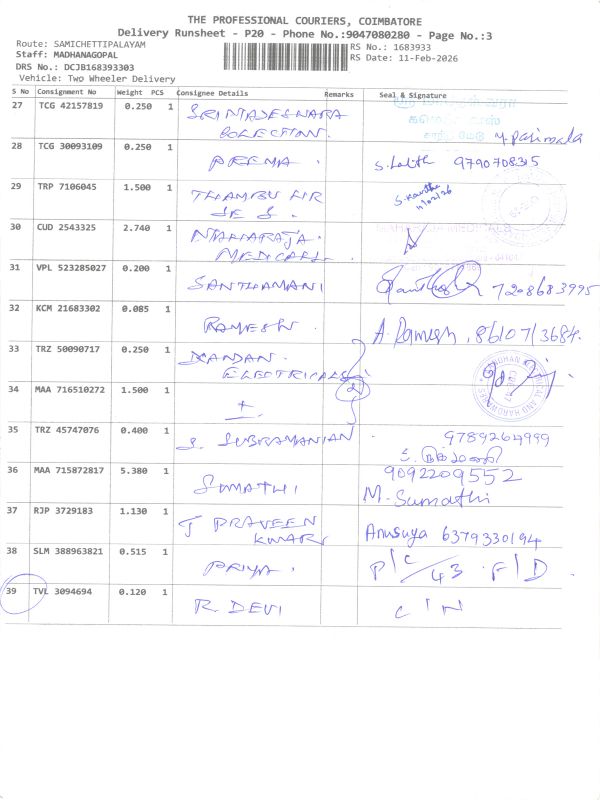 THE PROFESSIONAL COURIERS, COIMBATORE
Delivery Runsheet - P20 - Phone No.:9047080280 - Page No.:3
Route: SAMICHETTIPALAYAM
Staff: MADHANAGOPAL
DRS No.: DCJB168393303
Vehicle: Two Wheeler Delivery
RS No.: 1683933
RS Date: 11-Feb-2026
S No Consignment No Weight PCS Consignee Details Remarks Seal & Signature
27 TCG 42157819 0.250 1
28 TCG 30093109 0.250 1 PREMA S. Lalith
29 TRP 7106045 1.500 1
30 CUD 2543325 2.740 1 MEDICALS
31 VPL 523285027 0.200 1 SANTHAMANI 7208683995
32 KCM 21683302 0.085 1 RAMESH A. Ramesh, 8610713684.
33 TRZ 50090717 0.250 1 NANDAN ELECTRICALS
34 MAA 716510272 1.500 1
35 TRZ 45747076 0.400 1 S. SUBRAMANIAN
36 MAA 715872817 5.380 1 SUMATHI 9092209552
M. Sumathi
37 RJP 3729183 1.130 1 J PRAVEEN KUMAR Anusuya 6379330194
38 SLM 388963821 0.515 1 PRIYA. P/C 43 F/D
39 TVL 3094694 0.120 1 R. DEVI C/N